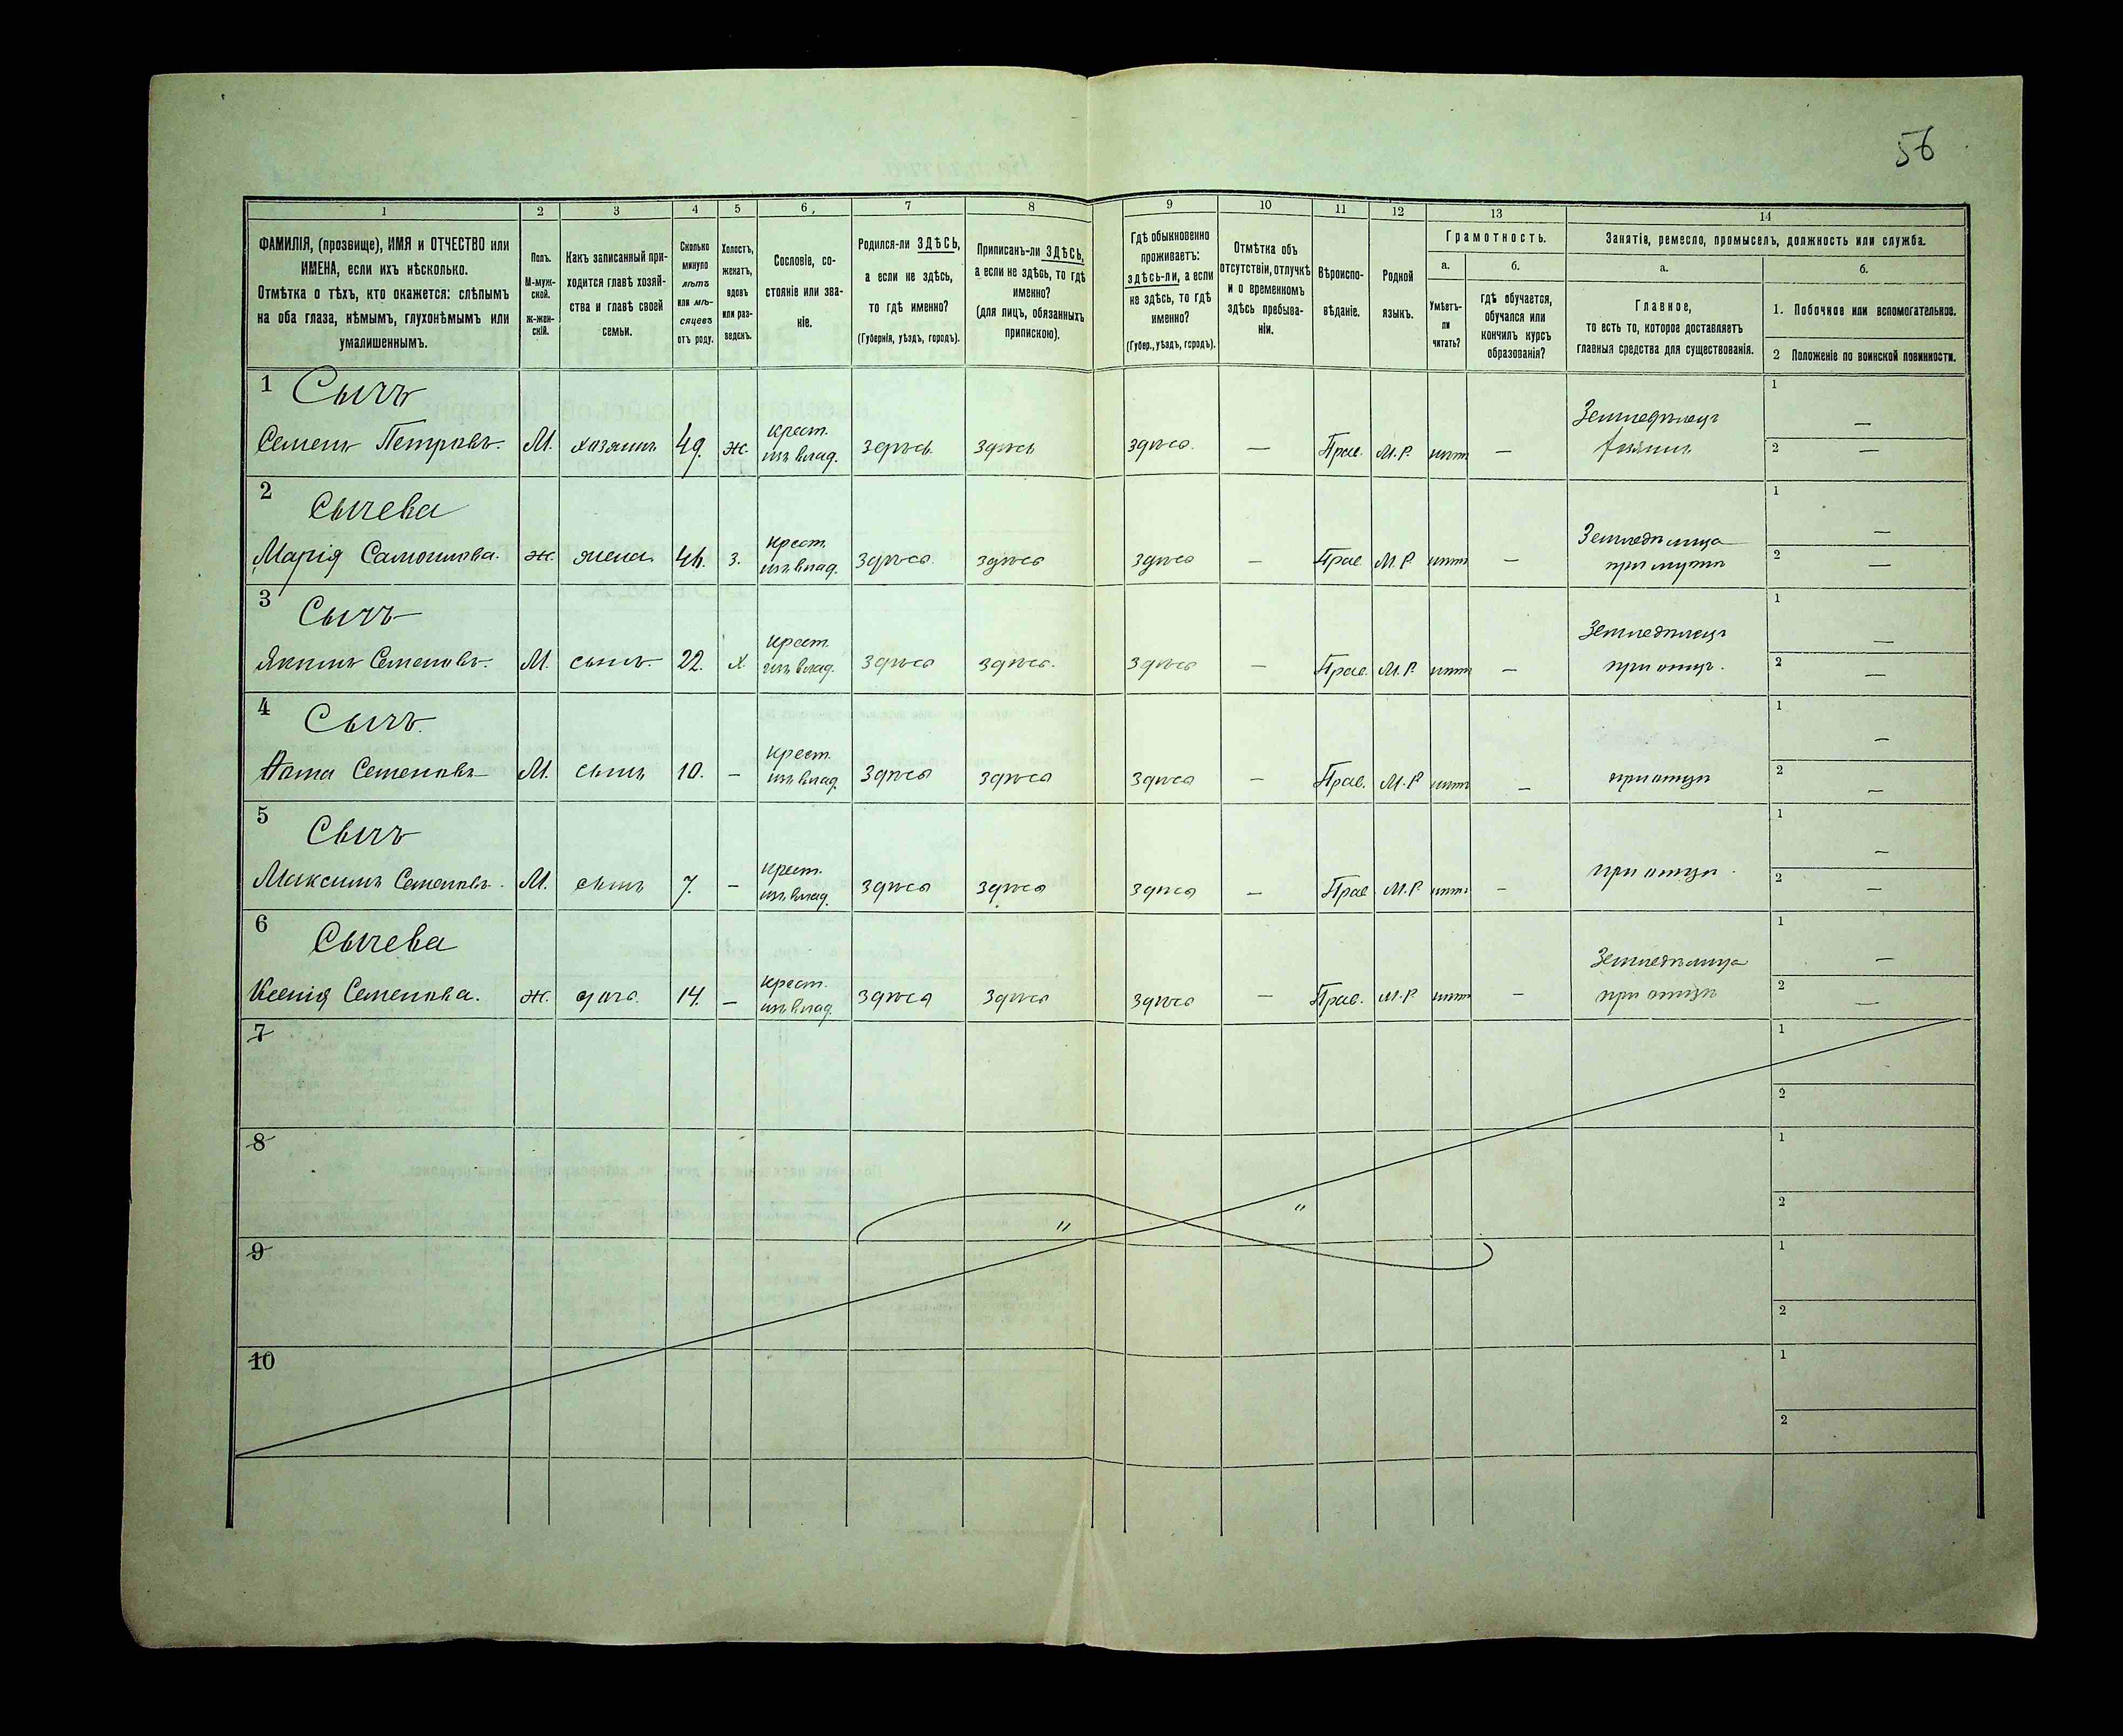 56
1 2 3 4 5 6 7 8 9 10 11 12 13 14
ФАМИЛІЯ, (прозвище), ИМЯ и ОТЧЕСТВО или
ИМЕНА, если ихъ нѣсколько.
Отмѣтка о тѣхъ, кто окажется: слѣпымъ
на оба глаза, нѣмымъ, глухонѣмымъ или
умалишеннымъ.
Полъ.
М-муж-
ской.
ж-жен-
скій.
Какъ записанный при-
ходится главѣ хозяй-
ства и главѣ своей
семьи.
Сколько
минуло
лѣтъ
или мѣ-
сяцевъ
отъ роду.
Холостъ,
женатъ,
вдовъ
или раз-
веденъ.
Сословіе, со-
стояніе или зва-
ніе.
Родился-ли ЗДѢСЬ,
а если не здѣсь,
то гдѣ именно?
(Губернія, уѣздъ, городъ).
Приписанъ-ли ЗДѢСЬ,
а если не здѣсь, то гдѣ
именно?
(для лицъ, обязанныхъ
припискою).
Гдѣ обыкновенно
проживаетъ:
здѣсь-ли, а если
не здѣсь, то гдѣ
именно?
(Губер., уѣздъ, городъ).
Отмѣтка объ
отсутствіи, отлучкѣ
и о временномъ
здѣсь пребыва-
ніи.
Вѣроиспо-
вѣданіе.
Родной
языкъ.
Грамотность.
а.
Умѣетъ-
ли
читать?
б.
гдѣ обучается,
обучался или
кончилъ курсъ
образованія?
Занятія, ремесло, промыселъ, должность или служба.
а.
Главное,
то есть то, которое доставляетъ
главныя средства для существованія.
б.
1. Побочное или вспомогательное.
2 Положеніе по воинской повинности.
1 Сычъ
Семенъ Петровъ. М. хозяинъ 49. ж. крест. изъ влад. здѣсь здѣсь здѣсь — Прав. М.Р. нѣтъ — Земледѣлецъ хозяинъ 1 — 2 —
2 Сычева
Марія Самойлова. ж. жена з. крест. изъ влад. здѣсь здѣсь здѣсь — Прав. М.Р. нѣтъ — Земледѣлица при мужѣ 1 — 2 —
3 Сычъ
Якимъ Семеновъ. М. сынъ 22. х. крест. изъ влад. здѣсь здѣсь. здѣсь — Прав. М.Р. нѣтъ — Земледѣлецъ при отцѣ. 1 — 2 —
4 Сычъ
Семеновъ М. сынъ 10. — крест. изъ влад. здѣсь здѣсь здѣсь — Прав. М.Р. нѣтъ — при отцѣ 1 — 2 —
5 Сычъ
Максимъ Семеновъ. М. сынъ 7. — крест. изъ влад. здѣсь здѣсь здѣсь — Прав. М.Р. нѣтъ — при отцѣ. 1 — 2 —
6 Сычева
Ксенія Семенова. ж. дочь. 14. — крест. изъ влад. здѣсь здѣсь здѣсь — Прав. М.Р. нѣтъ — Земледѣлица при отцѣ 1 — 2 —
7 1
2
8 1
2
" "
9 1
2
10 1
2